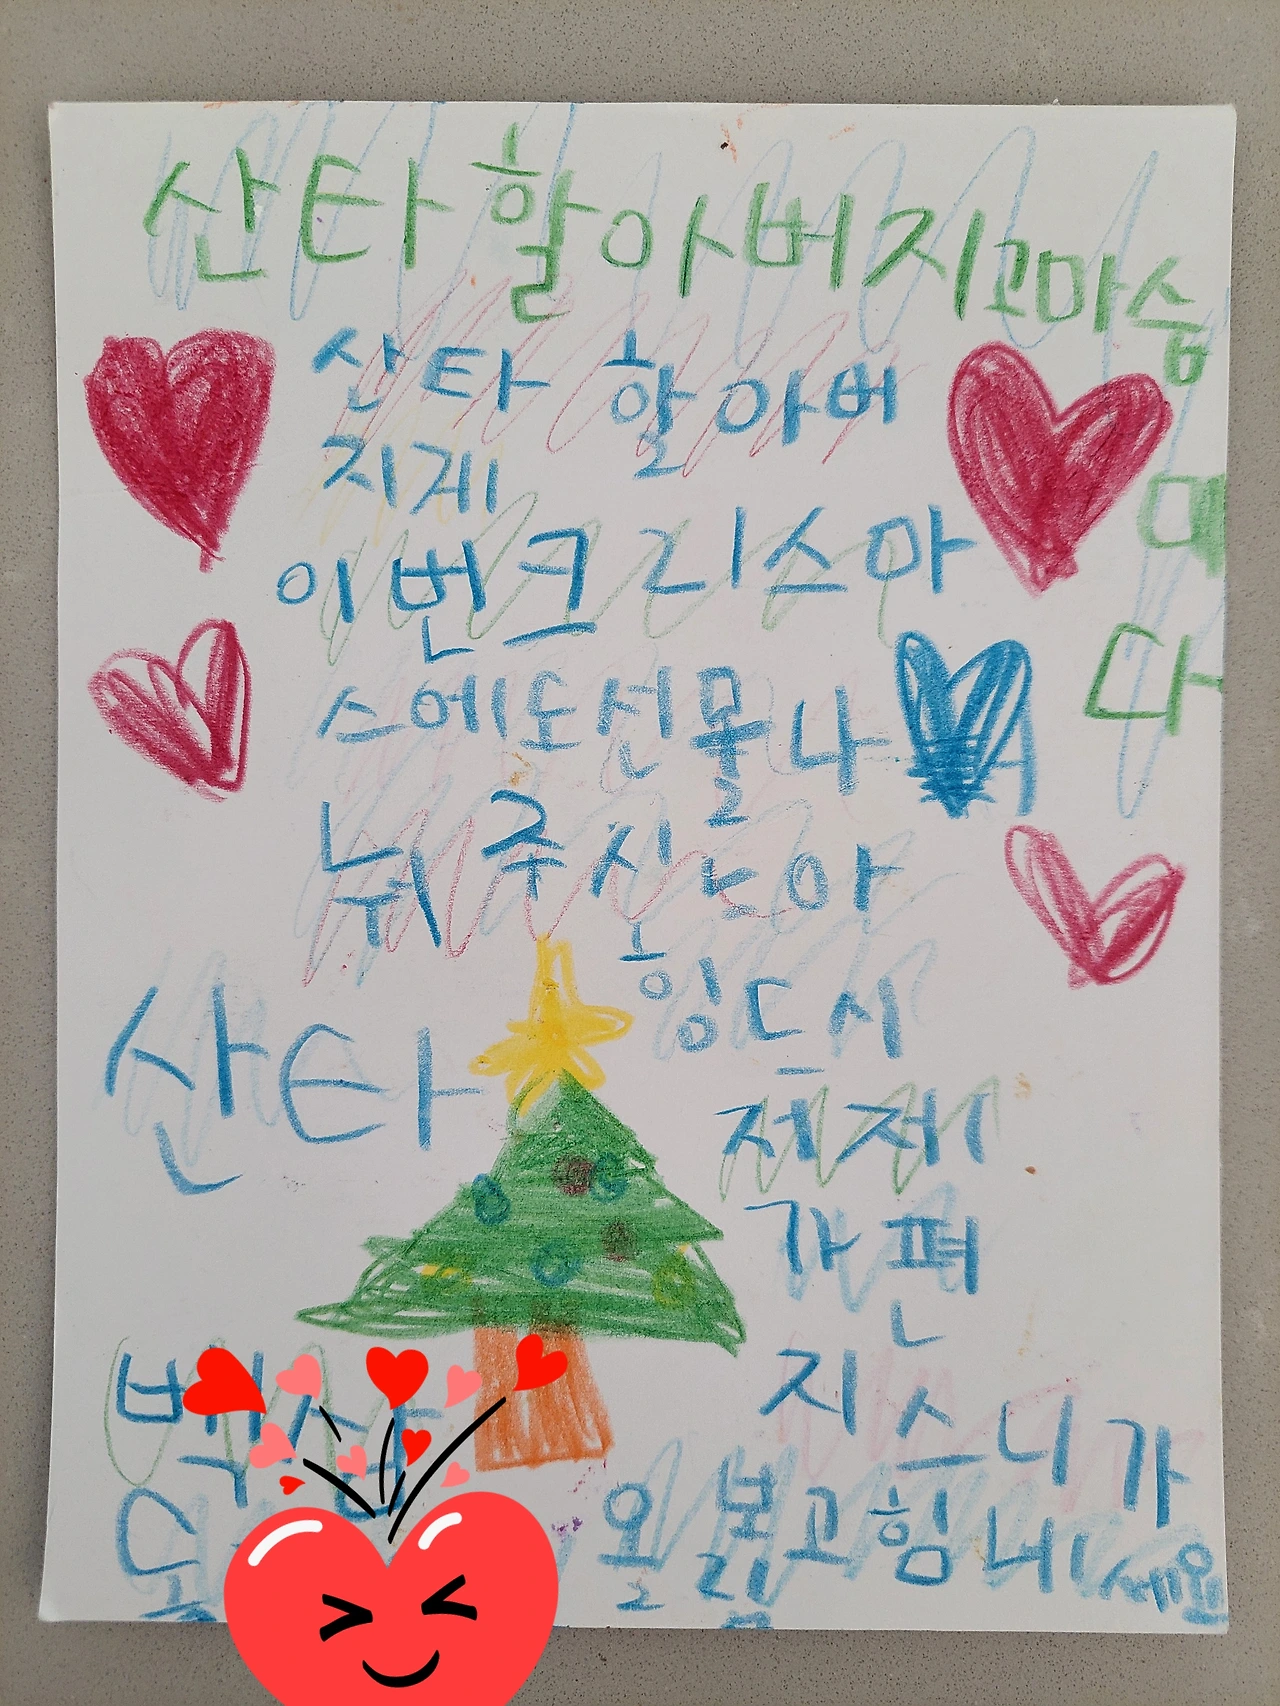 산타할아버지고마슴
미
다
산타 할아버
지게
이번크리스마
스에도선물나
눠주신ㄴ아
힝드시
산타
저제
가편
지스니가
오
고힘내세요